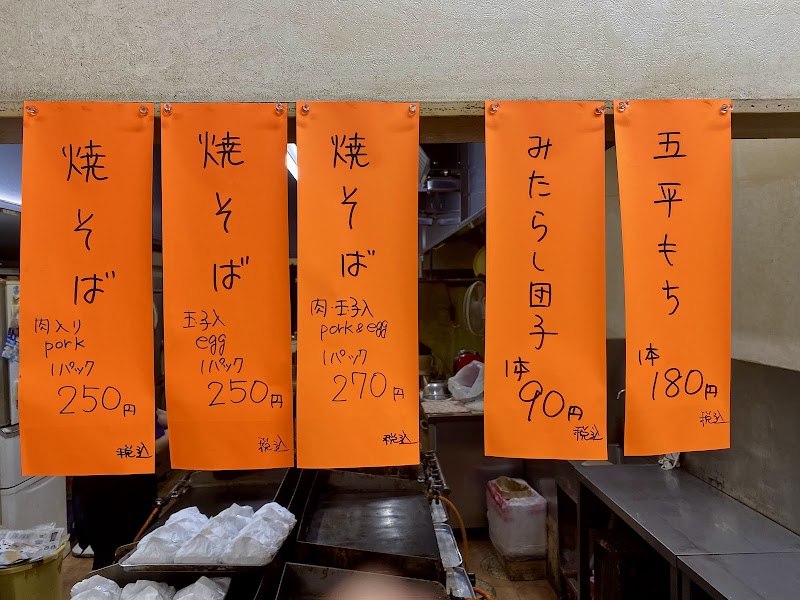 焼そば
肉入り
pork
1パック
250円
税込
焼そば
玉子入
egg
1パック
250円
税込
焼そば
肉・玉子入
pork & egg
1パック
270円
税込
みたらし団子
1本
90円
税込
五平もち
1本
180円
税込